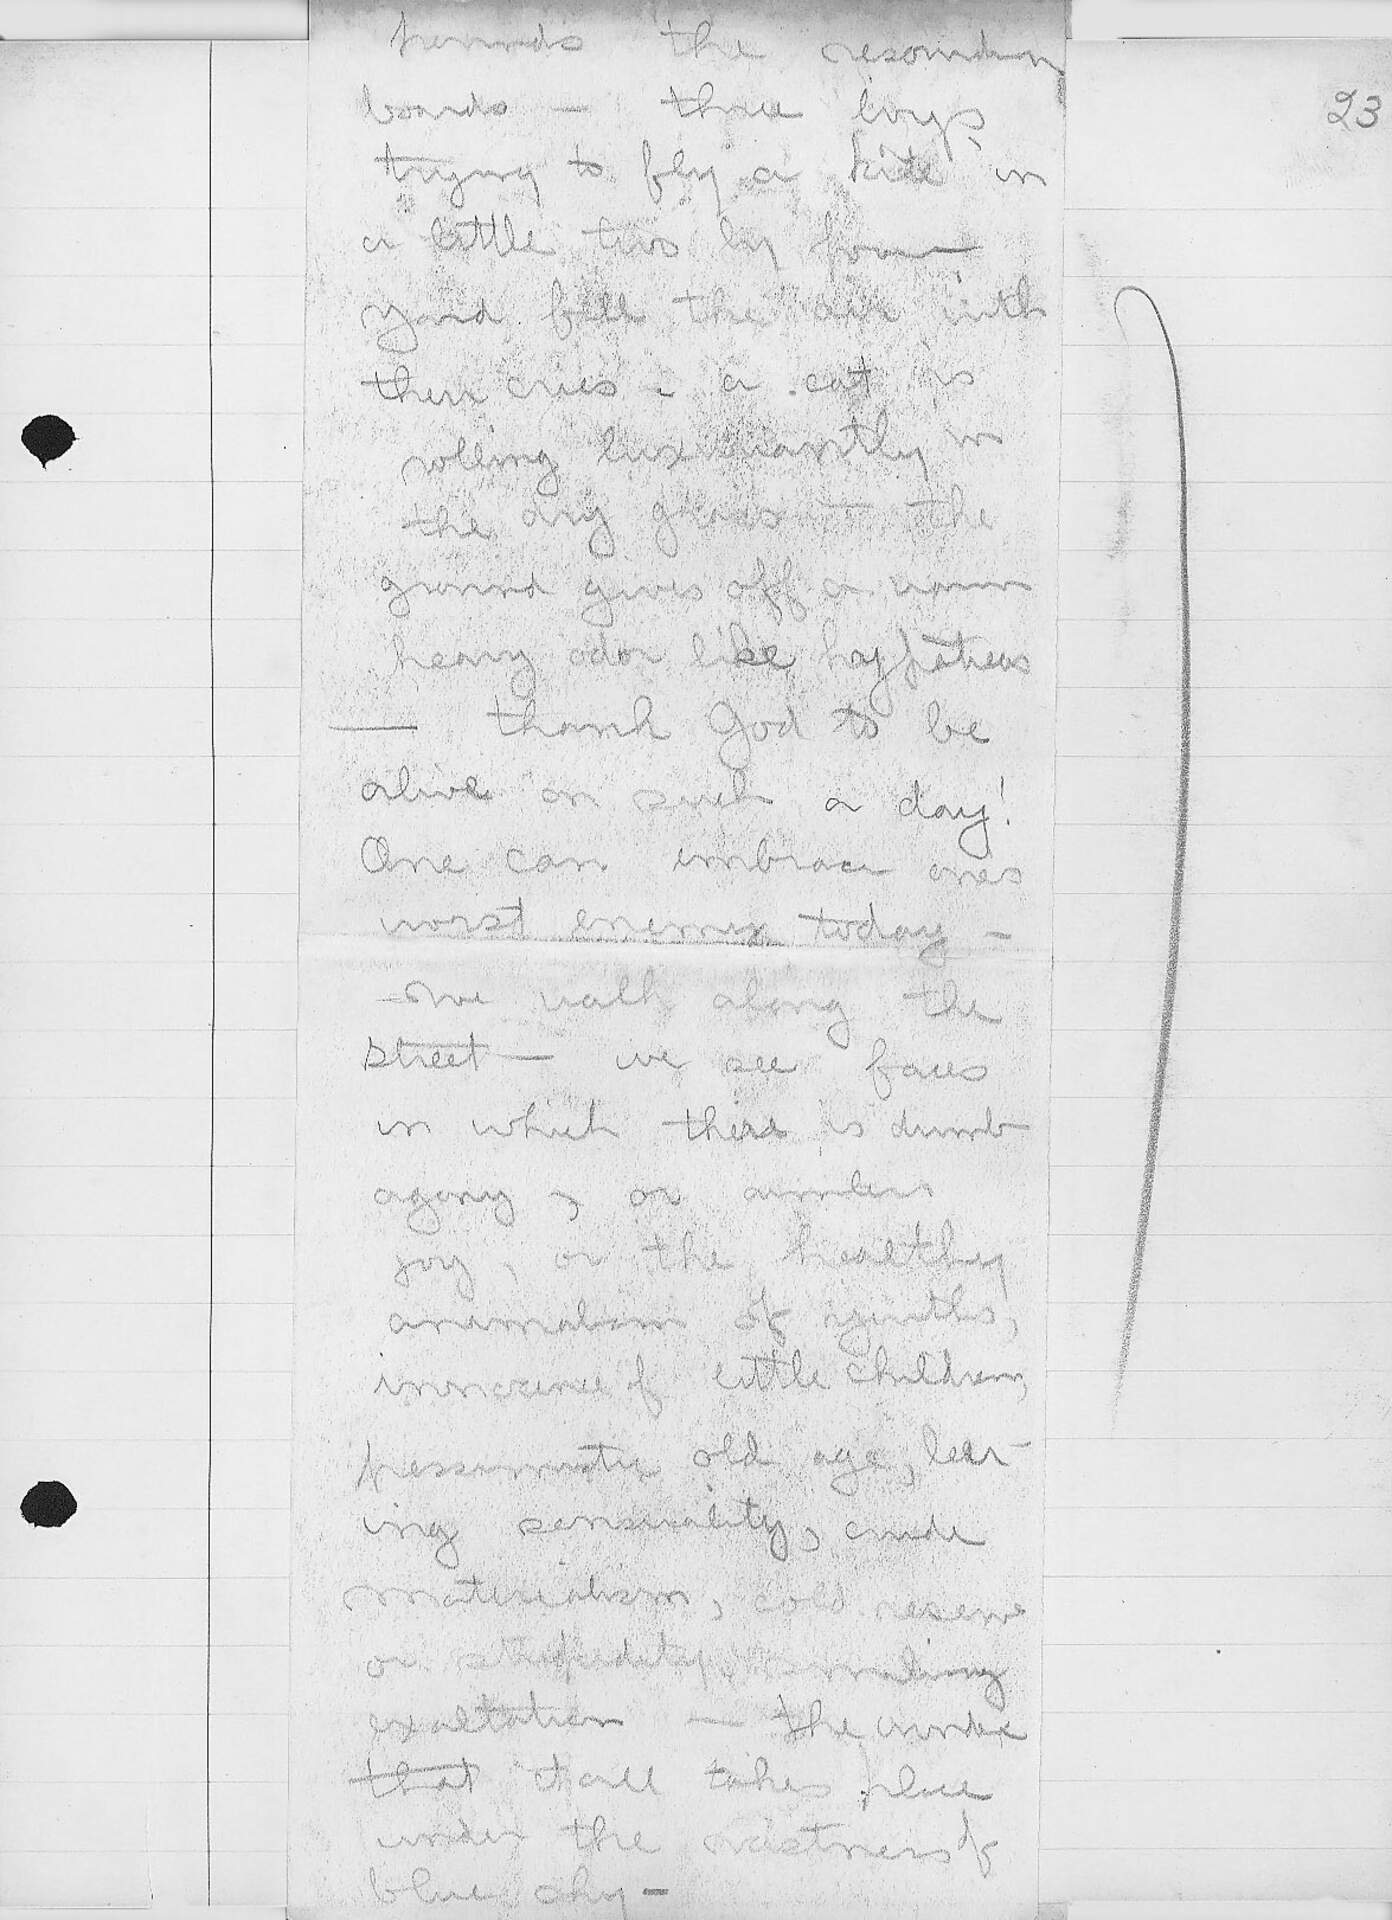 pounds the resounding
boards — three boys
trying to fly a kite in
23
a little two by four
yard fill the air with
their cries - a cat is
rolling luxuriantly in
the dry grass — the
ground gives off a warm
heavy odor like happiness
— thank God to be
alive on such a day!
One can embrace ones
worst enemy today -
- we walk along the
street — we see faces
in which there is dumb
agony, or
joy, or the healthy
animalism of youths,
innocence of little children,
pessimistic old age, leer-
ing sensuality, crude
materialism, cold reserve
or stupidity, smiling
exaltation — the wonder
that it all takes place
under the vastness of
blue sky -